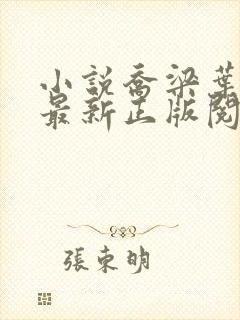 小説喬梁葉
最新正版閱
張東明